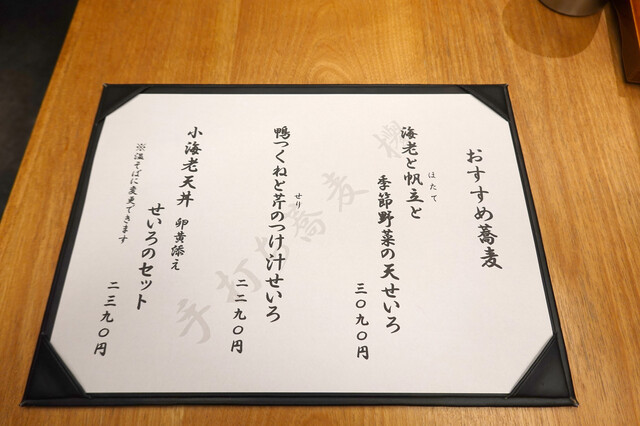 おすすめ蕎麦
海老と帆立と
ほたて
季節野菜の天せいろ
三〇九〇円
鴨つくねと芹のつけ汁せいろ
せり
二二九〇円
小海老天丼 卵黄添え
せいろのセット
二三九〇円
※温そばに変更できます
手打ち蕎麦